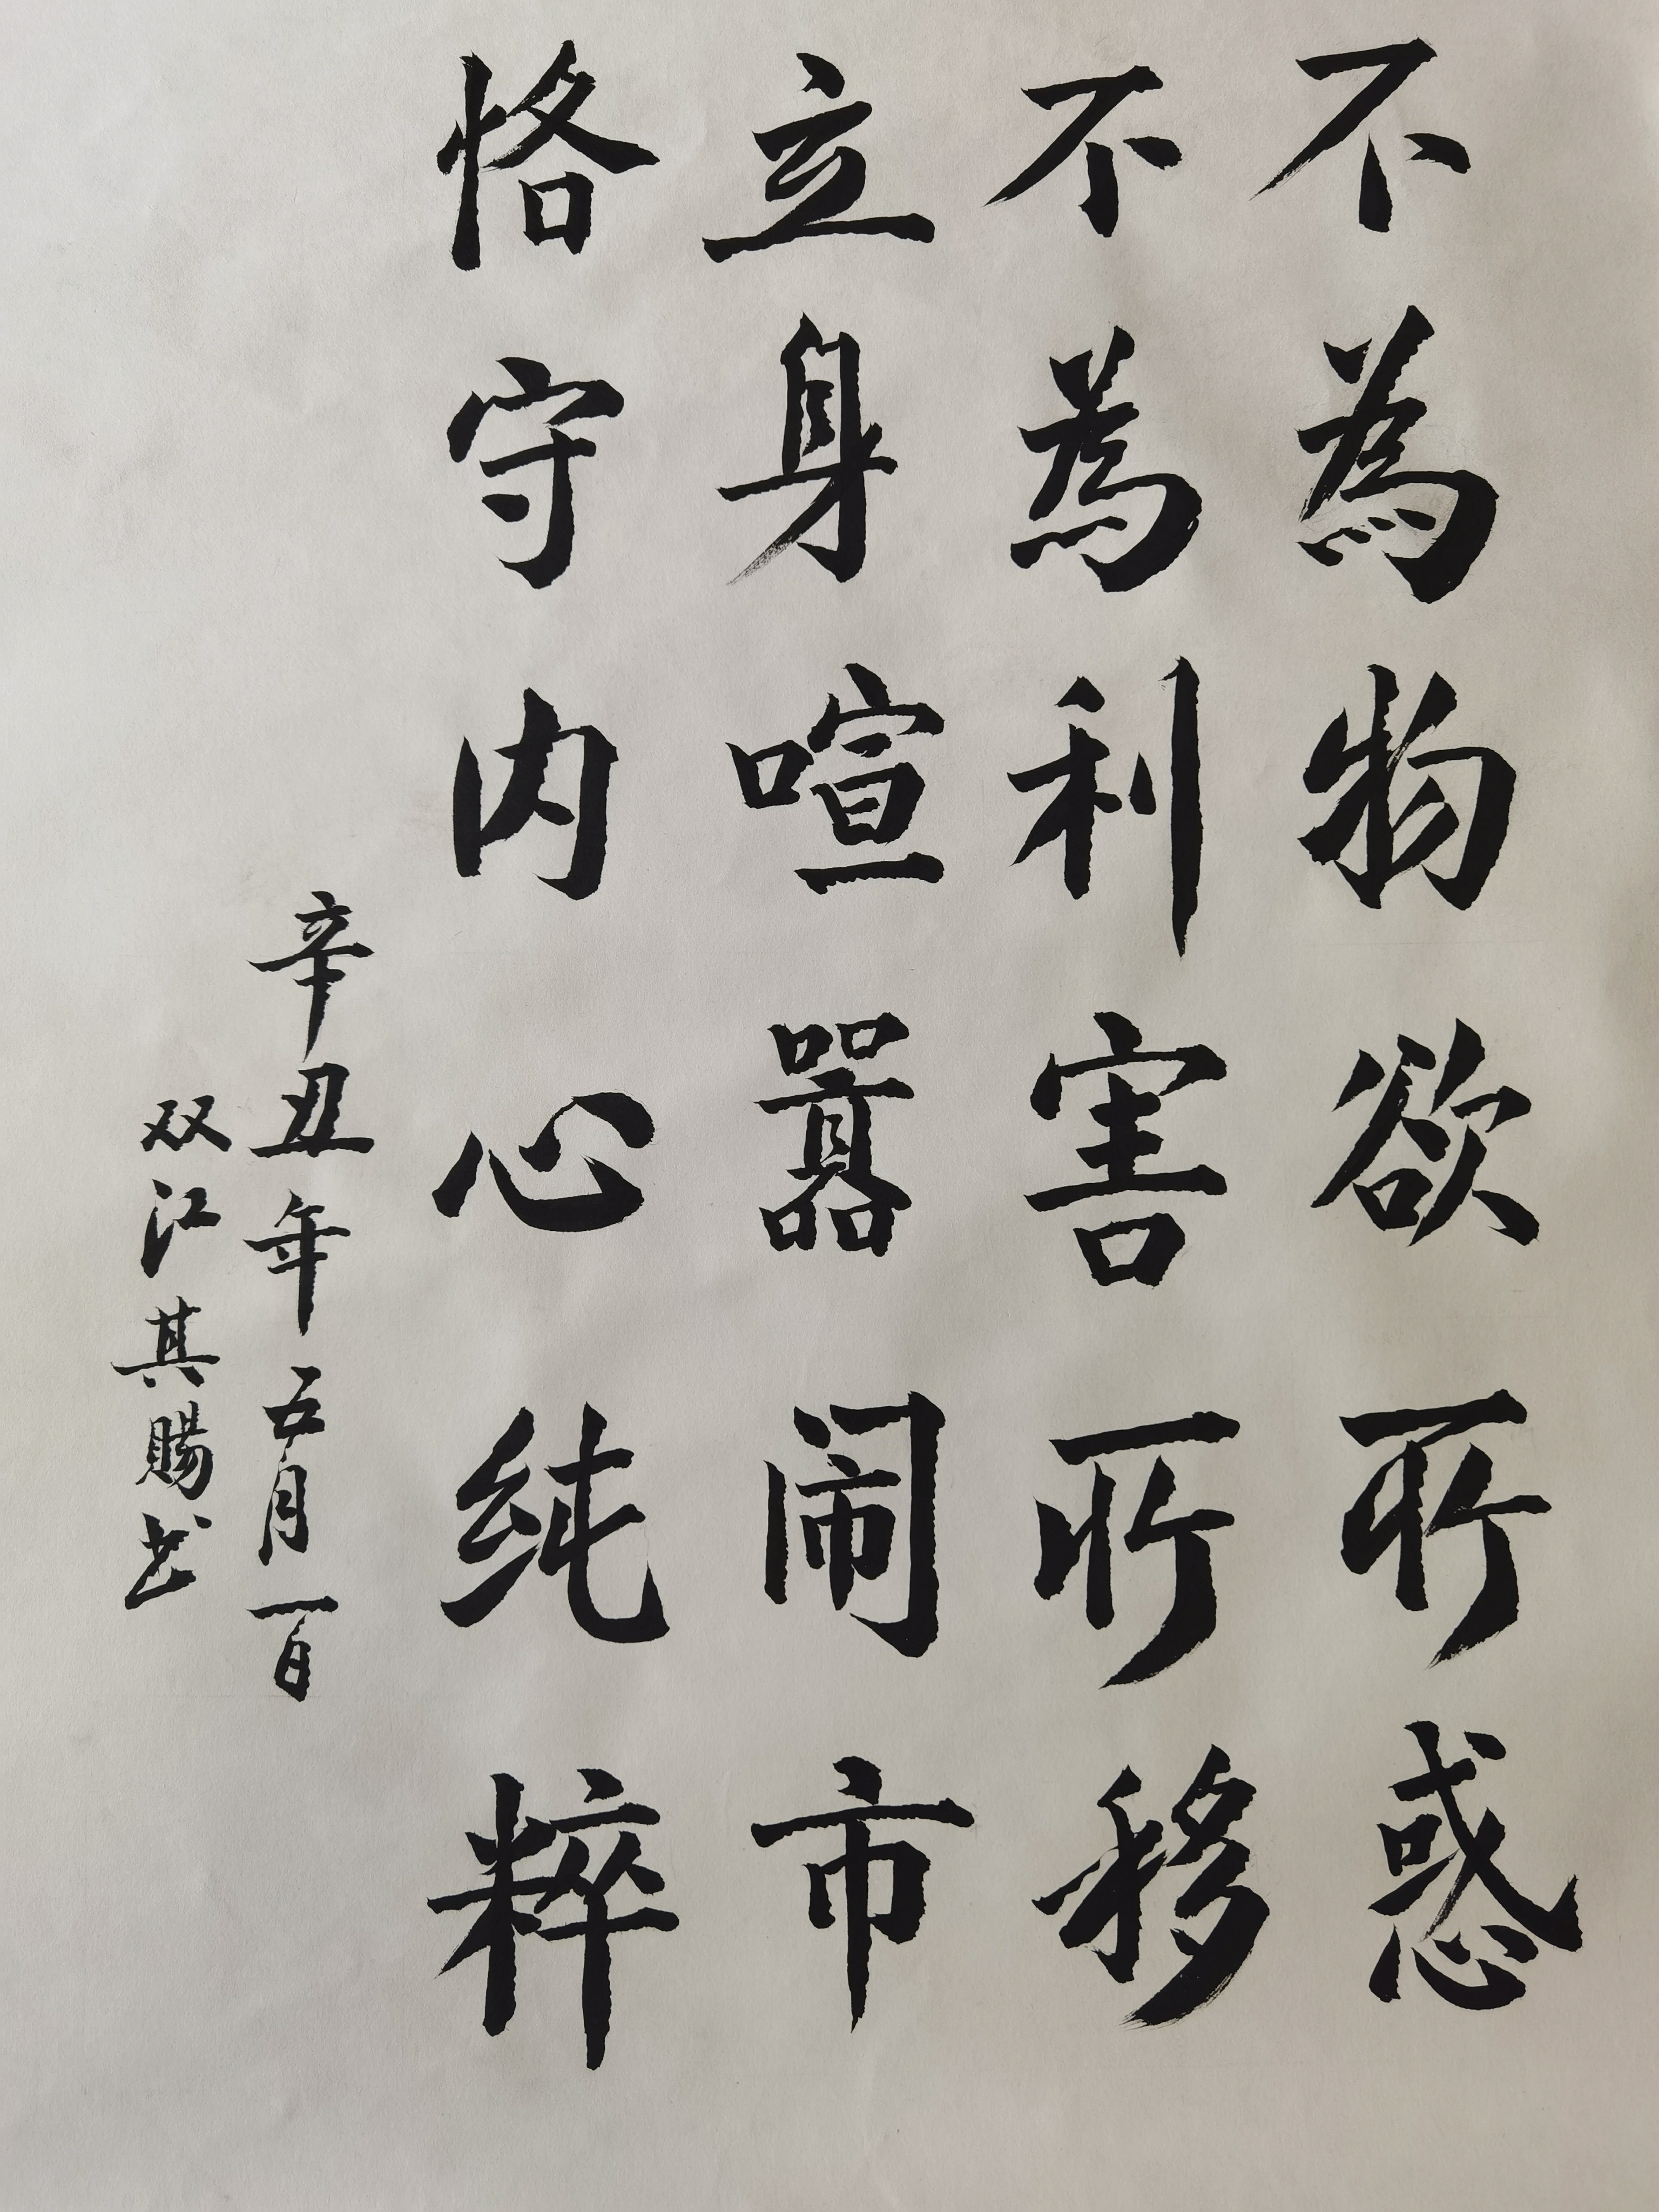 不為物欲所惑
不為利害所移
立身喧嚣闹市
恪守内心纯粹
辛丑年五月一日
双江其赐书